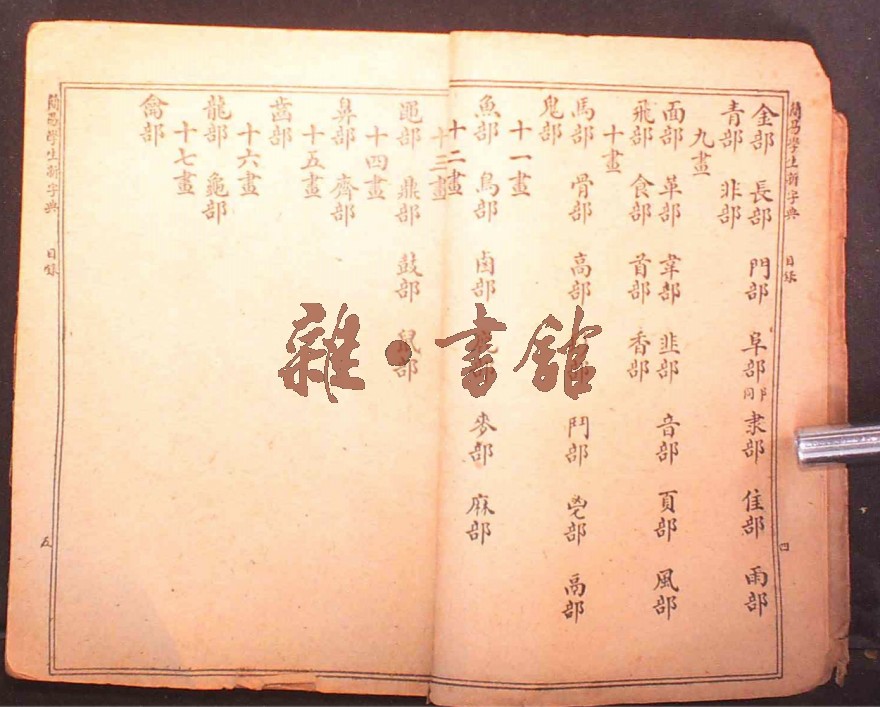 簡易學生新字典 目錄 四
金部 長部 門部 阜部 阝同 隶部 隹部 雨部
青部 非部
九畫
面部 革部 韋部 韭部 音部 頁部 風部
飛部 食部 首部 香部
十畫
馬部 骨部 高部 鬥部 鬯部 鬲部
鬼部
十一畫
魚部 鳥部 鹵部 鹿部 麥部 麻部
十二畫
十三畫
黽部 鼎部 鼓部 鼠部
十四畫
鼻部 齊部
十五畫
齒部
十六畫
龍部 龜部
十七畫
龠部
簡易學生新字典 目錄 五
雜·書館